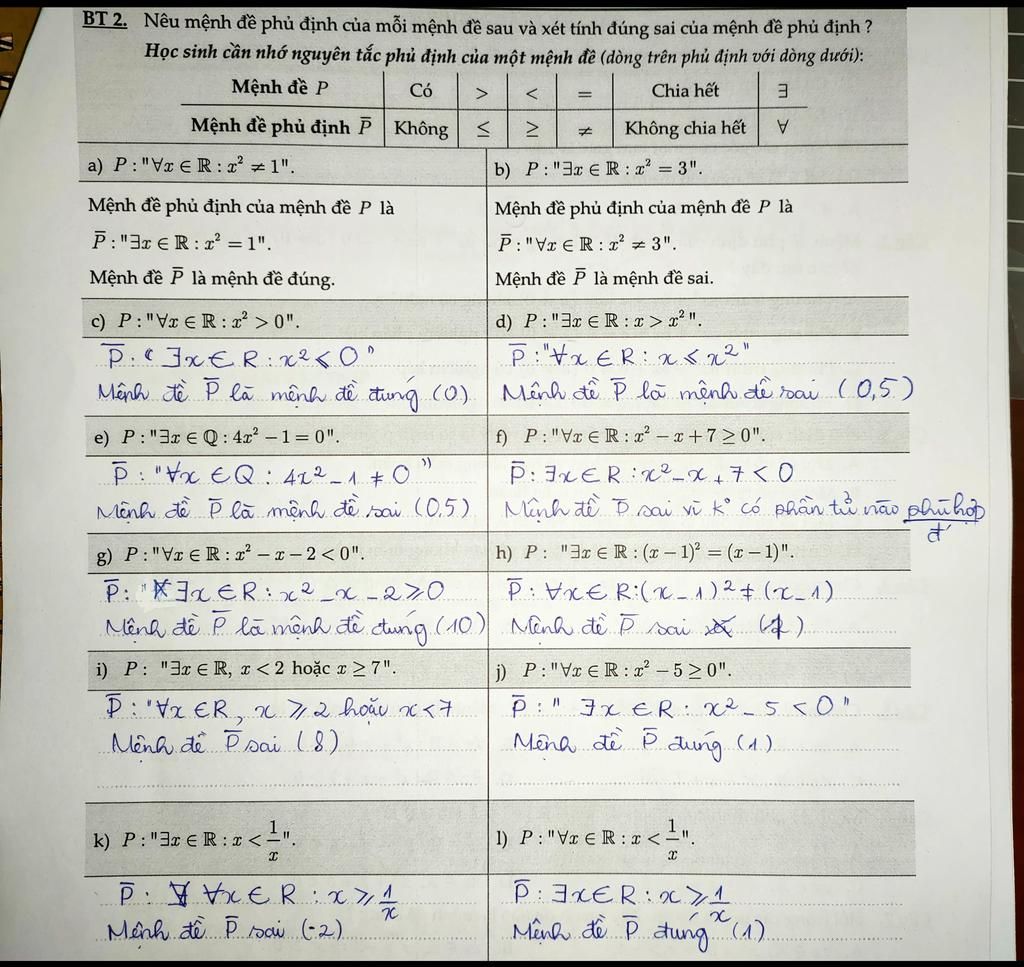 BT 2. Nêu mệnh đề phủ định của mỗi mệnh đề sau và xét tính đúng sai của mệnh đề phủ định ?
Học sinh cần nhớ nguyên tắc phủ định của một mệnh đề (dòng trên phủ định với dòng dưới):
Mệnh đề P Có > < = Chia hết ∃
Mệnh đề phủ định P̅ Không ≤ ≥ ≠ Không chia hết ∀
a) P : "∀x ∈ ℝ : x² ≠ 1".
Mệnh đề phủ định của mệnh đề P là
P̅ : "∃x ∈ ℝ : x² = 1".
Mệnh đề P̅ là mệnh đề đúng.
b) P : "∃x ∈ ℝ : x² = 3".
Mệnh đề phủ định của mệnh đề P là
P̅ : "∀x ∈ ℝ : x² ≠ 3".
Mệnh đề P̅ là mệnh đề sai.
c) P : "∀x ∈ ℝ : x² > 0".
P̅ : " ∃x ∈ R : x² ≤ 0 "
Mệnh đề P̅ là mệnh đề đúng (0)
d) P : "∃x ∈ ℝ : x > x² ".
P̅ : "∀x ∈ R : x ≤ x² "
Mệnh đề P̅ là mệnh đề sai (0,5)
e) P : "∃x ∈ ℚ : 4x² − 1 = 0".
P̅ : "∀x ∈ Q : 4x² − 1 ≠ 0 "
Mệnh đề P̅ là mệnh đề sai (0,5)
f) P : "∀x ∈ ℝ : x² − x + 7 ≥ 0".
P̅ : ∃x ∈ R : x² − x + 7 < 0
Mệnh đề P̅ sai vì k° có phần tử nào phù hợp
đ
g) P : "∀x ∈ ℝ : x² − x − 2 < 0".
P̅ : " ∃x ∈ R : x² − x − 2 ≥ 0
Mệnh đề P̅ là mệnh đề đúng (10)
h) P : "∃x ∈ ℝ : (x − 1)² = (x − 1)".
P̅ : ∀x ∈ R : (x − 1)² ≠ (x − 1)
Mệnh đề P̅ sai
i) P : "∃x ∈ ℝ, x < 2 hoặc x ≥ 7".
P̅ : "∀x ∈ R, x ≥ 2 hoặc x < 7
Mệnh đề P̅ sai (8)
j) P : "∀x ∈ ℝ : x² − 5 ≥ 0".
P̅ : " ∃x ∈ R : x² − 5 < 0 "
Mệnh đề P̅ đúng (1)
k) P : "∃x ∈ ℝ : x < 1/x".
P̅ : ∀x ∈ R : x ≥ 1/x
Mệnh đề P̅ sai (-2)
l) P : "∀x ∈ ℝ : x < 1/x".
P̅ : ∃x ∈ R : x ≥ 1/x
Mệnh đề P̅ đúng (1)